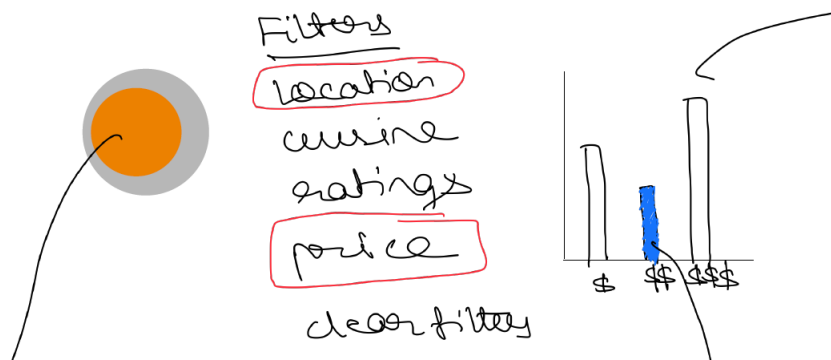 Filters
Location
cuisine
ratings
price
clear filters
$ $$ $$$